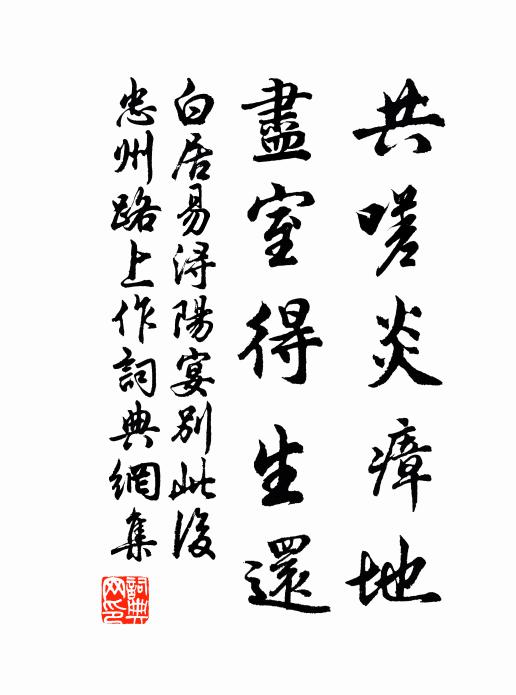 共嗟炎瘴地
盡室得生還
白居易潯陽宴別此後
忠州路上作詞典網集
詞典网印